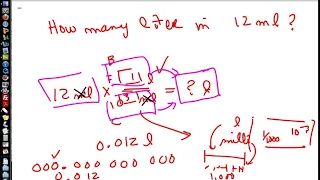 How many liter in 12 ml ?
12 ml × 1 l / 10³ ml = ? l
0.012 l
l
milli 1/1000 10⁻³
000.000 000 000
0.012
1,000